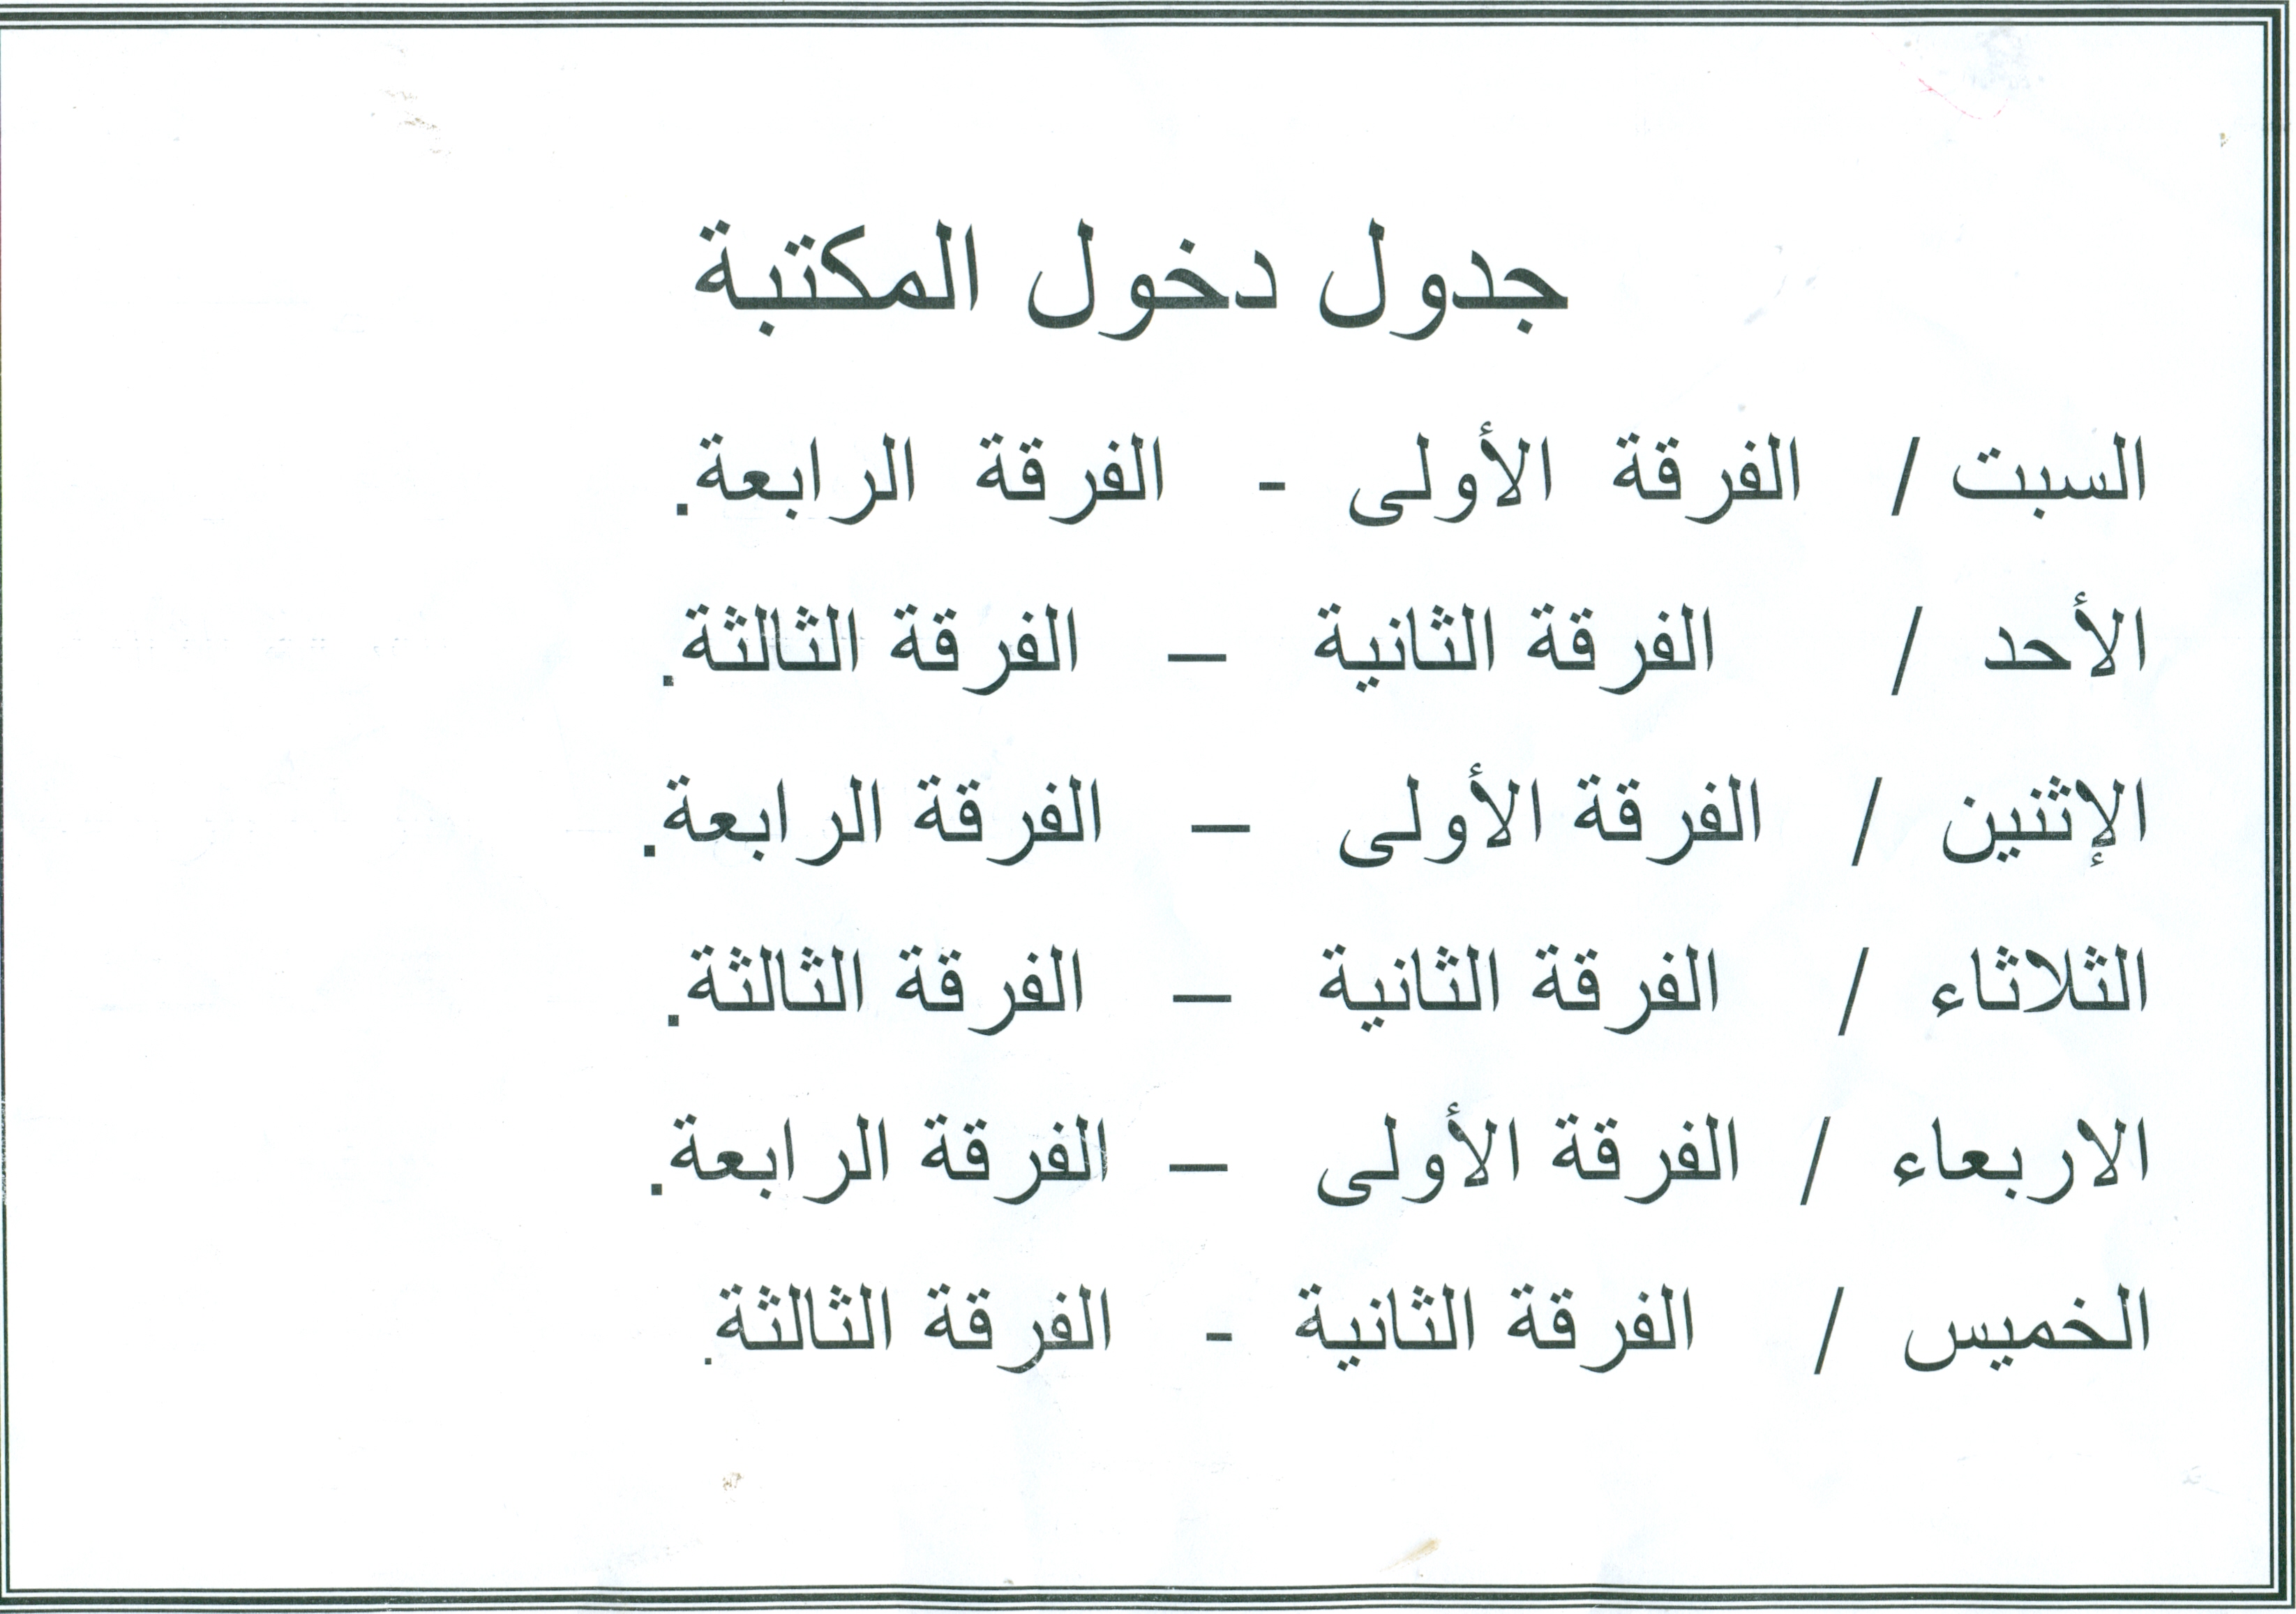 جدول دخول المكتبة
السبت / الفرقة الأولى - الفرقة الرابعة.
الأحد / الفرقة الثانية – الفرقة الثالثة.
الإثنين / الفرقة الأولى – الفرقة الرابعة.
الثلاثاء / الفرقة الثانية – الفرقة الثالثة.
الاربعاء / الفرقة الأولى – الفرقة الرابعة.
الخميس / الفرقة الثانية - الفرقة الثالثة.